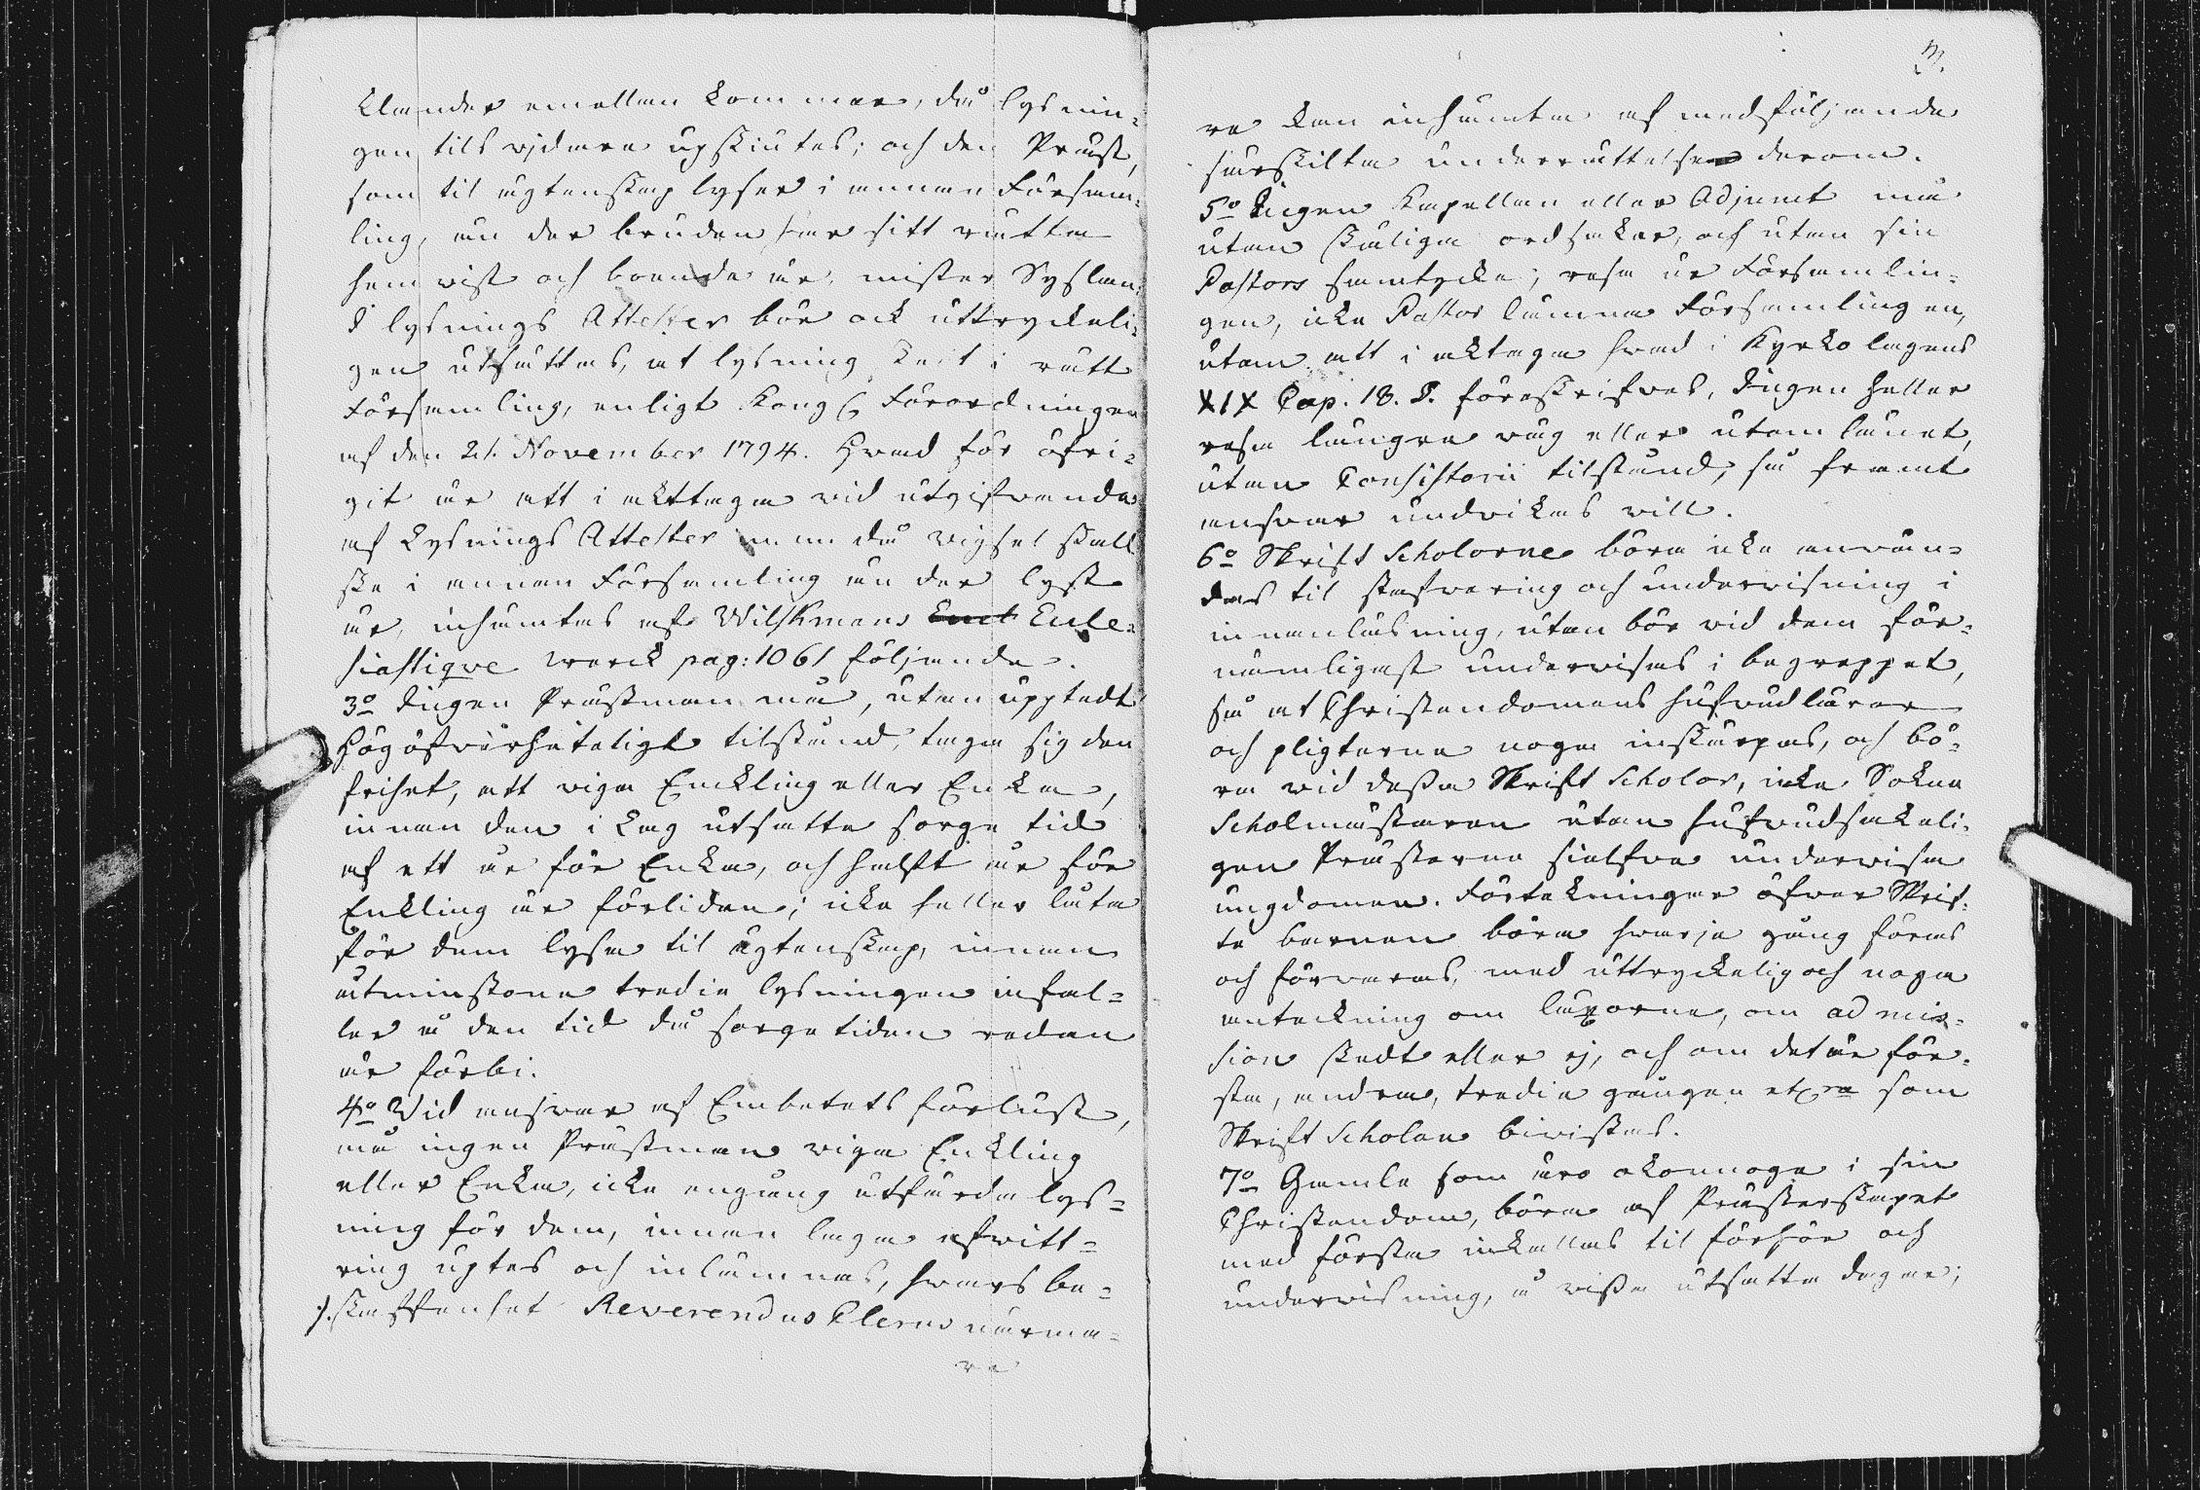 klander emellan kommer, då lysnin¬
gen tils vidare upskiutes; och den Präst,
som til ägtenskap lyser i annan Försam¬
ling, än der bruden har sitt rätta
hemvist och boende är, mister Syslan.
I lysnings Attester bör ock uttryckeli¬
gen utsättas, at lysning skett i rätt
Församling, enligt Kongl. Förordningen
af den 21. November 1794. Hvad för öfri¬
git är att i akttaga vid utgifvande
af Lysnings Attester innan då vigsel skall
ske i annan Församling än der lyst
är, inhämtas af Wilskmans Eccle¬
siastique werck pag: 1061 följande.
3o Ingen Prästman må, utan upptedt
Högöfverheteligt tilstånd, taga sig den
frihet, att viga Enckling eller Enka,
innan den i Lag utsatte sorge tid
af ett år för Enka, och halft år för
Enkling är förliden; icke heller låta
för dem lysa til ägtenskap, innan
åtminstone tredie lysningen infal¬
ler å den tid då sorgetiden redan
är förbi.
4o Vid answar af Embetets förlust,
må ingen Prästman viga Enkling
eller Enka, icke engång utfärda lys¬
ning för dem, innan laga afwitt¬
ring uptes och inlämnas, hwars be¬
skaffenhet Reverendus Clerus närma¬
re
3.
re kan inhämta af medföljande
särskilta underrättelse derom.
5o Ingen Kapellan eller Adjunct må
utan skäliga ordsaker, och utan sin
Pastors samtycke, resa ur Församlin¬
gen, icke Pastor lämna Församlingen,
utan att i akttaga hvad i Kyrko lagens
XIX Cap. 18. §. föreskrifves, Ingen heller
resa längre väg eller utom länet,
utan Consistorii tilstånd, så framt
answar undvikas vill.
6o Skrift Scholorne böra icke använ¬
das til stafvering och undervisning i
innanläsning, utan bör vid dem för¬
nämligast undervisas i begreppet,
så at Christendomens hufvudläror
och pligterna noga inskärpas, och bö¬
ra vid dessa Skrift Scholor, icke Sokne
Scholmästaren utan hufvudsakeli¬
gen Prästerna sielfve undervisa
ungdomen. Förtekningar öfver Skrif¬
te barnen böra hwarje gång föras
och förvaras, med uttryckelig och noga
anteckning om läxorne, om admis¬
sion skedt eller ej, och om det är för¬
sta, andra, tredie gången etc. som
Skrift Scholan bivistas.
7o Gamla som äro okunnoga i sin
Christendom, böra af Prästerskapet
med första inkallas til förhör och
undervisning, å vissa utsatta dagar;